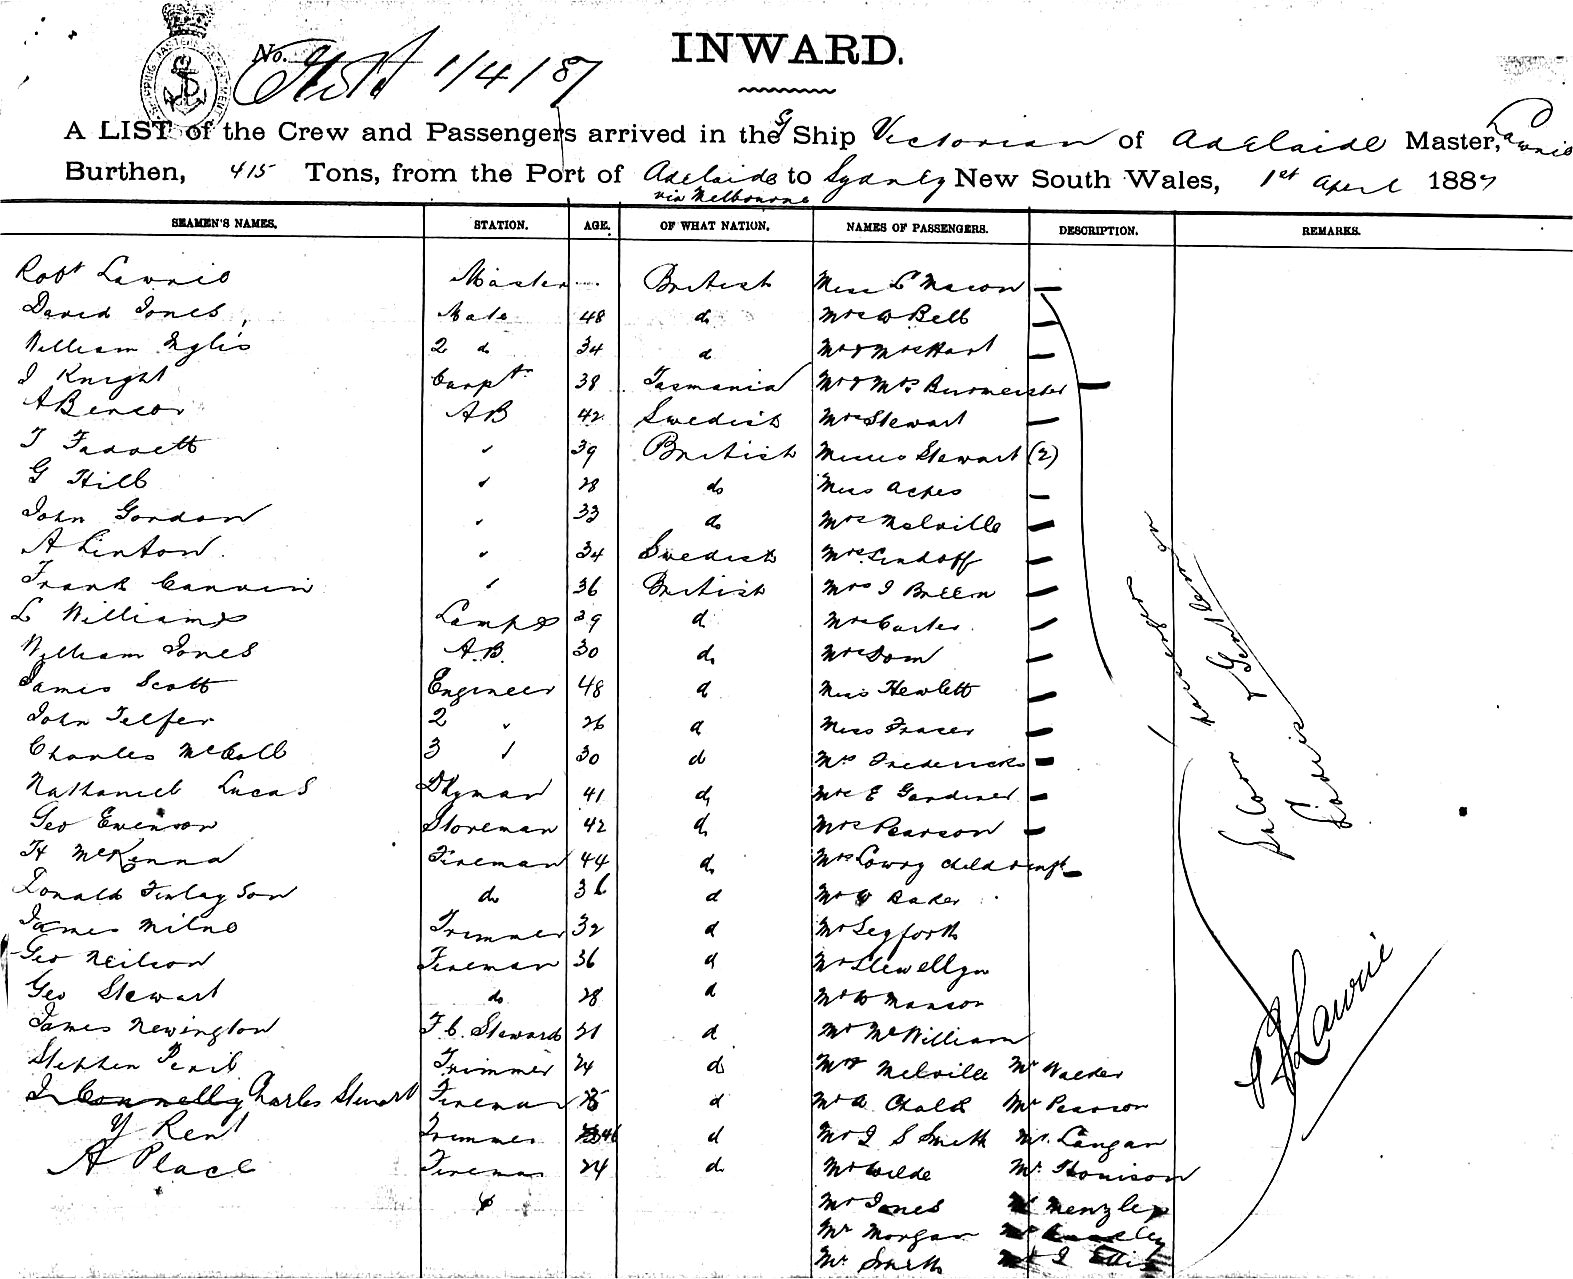 No. 1/4/87
INWARD.
A LIST of the Crew and Passengers arrived in the S Ship Victorian of Adelaide Master, Lawrie
Burthen, 415 Tons, from the Port of Adelaide to Sydney New South Wales, 1st April 1887
via Melbourne
SEAMEN'S NAMES. STATION. AGE. OF WHAT NATION. NAMES OF PASSENGERS. DESCRIPTION. REMARKS.
Robt Lawrie Master British Miss L Mason —
David Jones Mate 48 do Mrs Bell —
William Inglis 2 do 34 do Mr & Mrs Hart —
J Knight Carptr 38 Tasmania Mr & Mrs Burmeister —
A Benson AB 42 Swedish Mrs Stewart —
T Fawcett " 39 British Misses Stewart (2)
G Hill " 28 do Miss —
John Gordon " 33 do Mrs Melville —
A Linton " 34 Swedish Mrs Lindoff —
Frank Cannin " 36 British Mrs J Breen —
L Williams Lamps 39 d Mrs Carter —
William Jones A.B. 30 do Mrs Dom —
James Scott Engineer 48 d Miss Hewlett —
John Telfer 2 " 26 d Miss Fraser —
Charles McCall 3 " 30 d Mrs Fredericks —
Nathaniel Lucas Dkyman 41 d Mrs E Gardiner —
Geo Evenson Storeman 42 d Mrs Pearson —
H McKenna Fireman 44 d Mrs Lowry child & inft —
Donald Finlayson do 36 d Mr Baker
James Milne Trimmer 32 d Mr Segforth
Geo Neilson Fireman 36 d Mr Llewellyn
Geo Stewart do 28 d Mr W Manson
James Newington F.C. Steward 21 d Mr McWilliam
Stephen Trimmer 24 d Mr Melville Mr Walder
J Connelly Charles Stewart Fireman 25 d Mr A Child Mr Pearson
Y Kent Trimmer 46 d Mr J S Smith Mr Langan
A Place Fireman 24 d Mr Wilde Mr Thomson
Mr Jones Mr Menzles
Mr Morgan
Mr Smith Mr J Ellis
Saloon passengers
Ladies & Gentlemen
R Lawrie